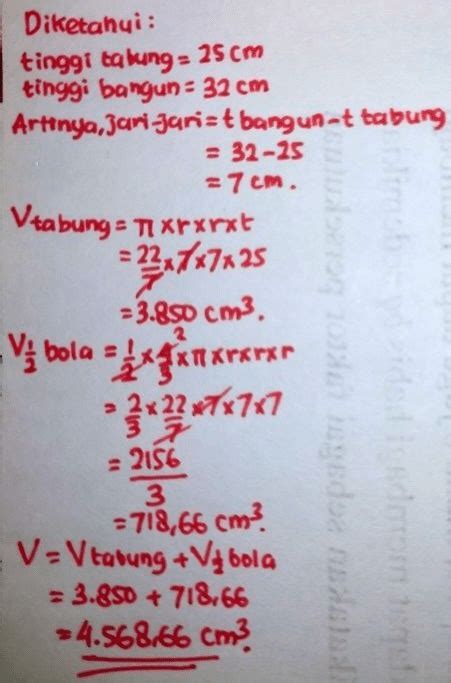 Diketahui:
tinggi tabung = 25 cm
tinggi bangun = 32 cm
Artinya, jari-jari = t bangun - t tabung
= 32 - 25
= 7 cm.
V tabung = π x r x r x t
= 22/7 x 7 x 7 x 25
= 3.850 cm³.
V½ bola = 1/2 x 4/3 2 x π x r x r x r
= 2/3 x 22/7 x 7 x 7 x 7
= 2156/3
= 718,66 cm³.
V = V tabung + V½ bola
= 3.850 + 718,66
= 4.568,66 cm³.